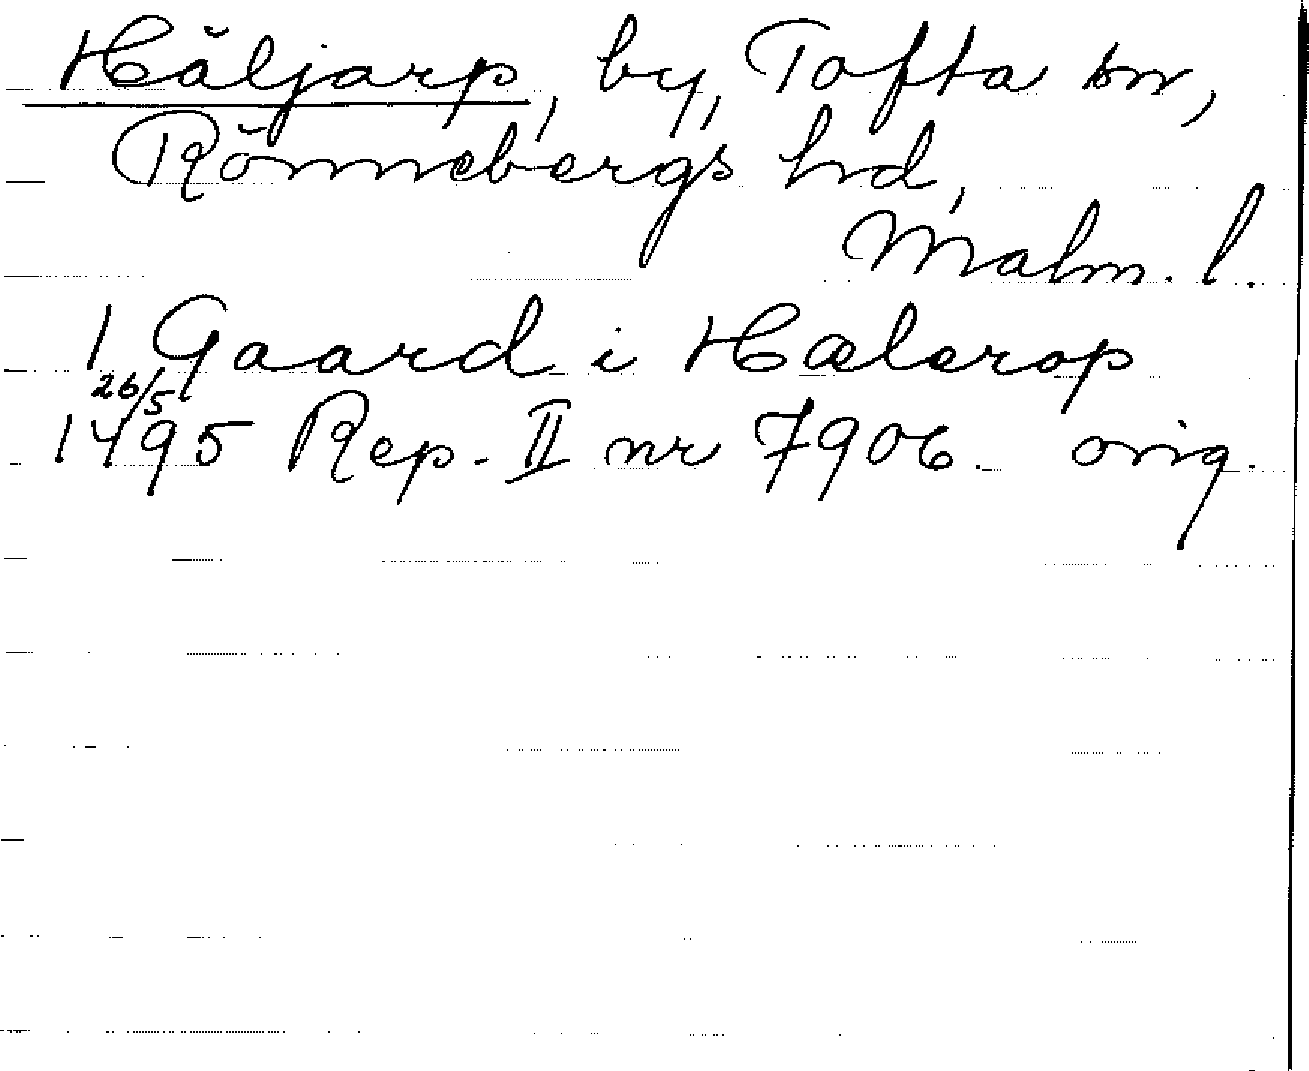 Häljarp, by, Tofta sn,
Rönnebergs hd,
Malm. l.
1 Gaard i Hælerop
26/5
1495 Rep. II nr 7906. orig.